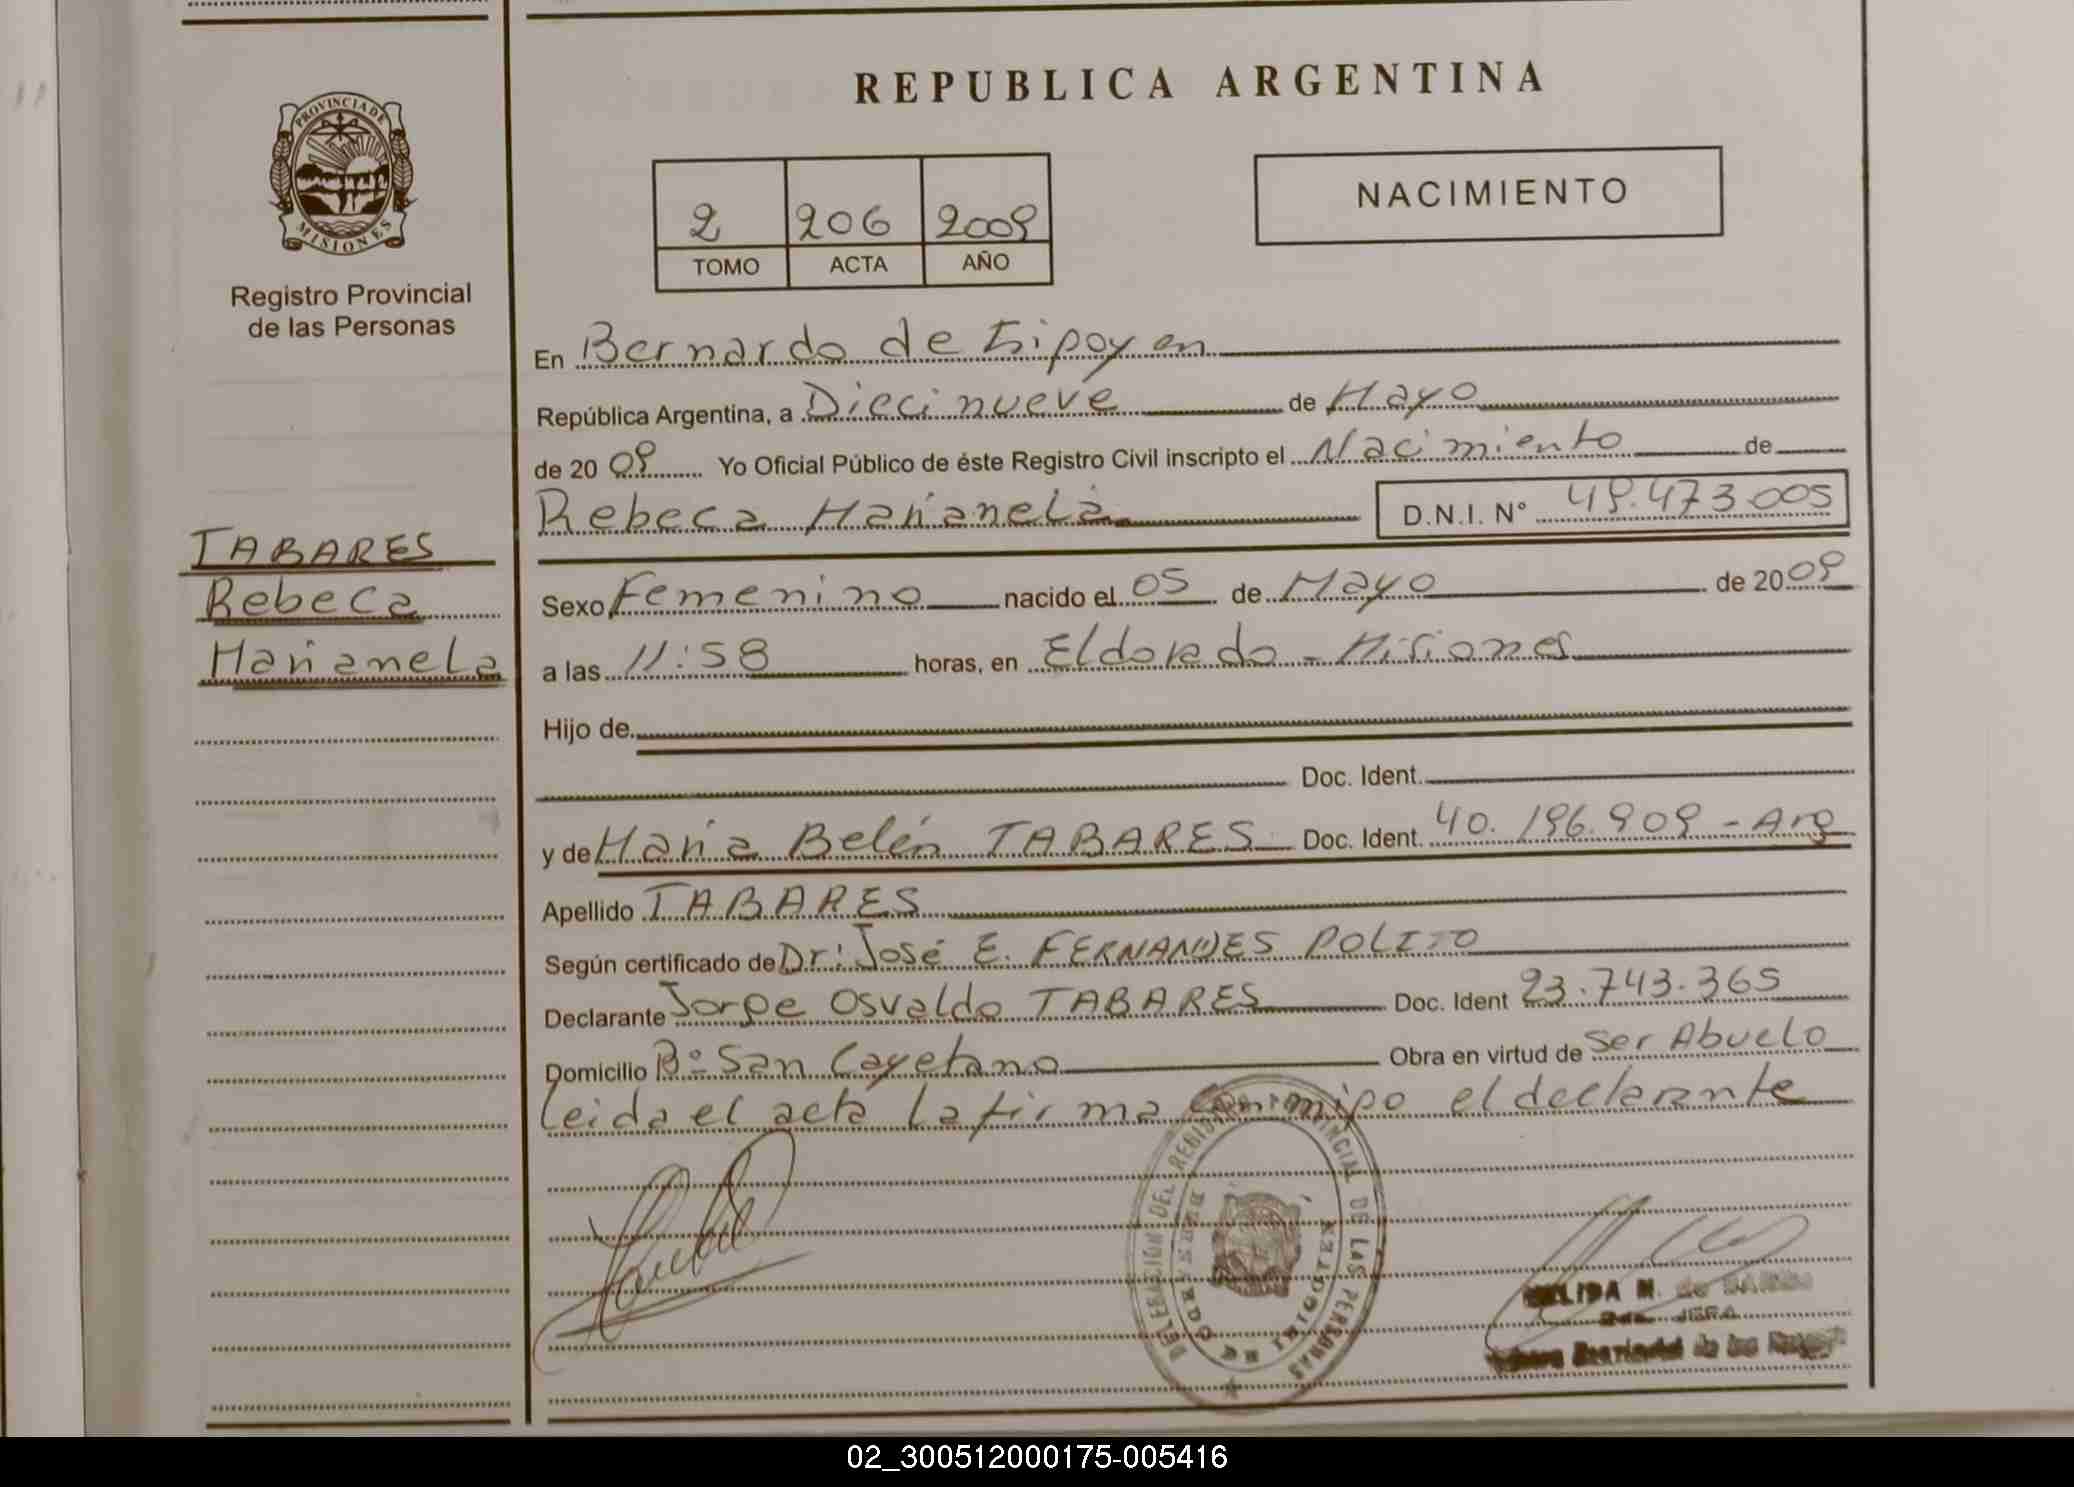 REPUBLICA ARGENTINA
PROVINCIA DE
MISIONES
Registro Provincial
de las Personas
NACIMIENTO
2 206 2009
TOMO ACTA AÑO
En Bernardo de Irigoyen
República Argentina, a Diecinueve de Mayo
de 20 09 Yo Oficial Público de éste Registro Civil inscripto el Nacimiento de
Rebeca Marianela D.N.I. N° 49.473.005
TABARES
Rebeca
Marianela
Sexo Femenino nacido el 05 de Mayo de 20 09
a las 11:58 horas, en Eldorado - Misiones
Hijo de
Doc. Ident.
y de María Belén TABARES Doc. Ident. 40.196.909 - Arg
Apellido TABARES
Según certificado de Dr: José E. FERNANDES POLITO
Declarante Jorge Osvaldo TABARES Doc. Ident 23.743.365
Domicilio B° San Cayetano Obra en virtud de Ser Abuelo
Leida el acta la firma Conmigo el declarante
DELEGACIÓN DEL REGISTRO PROVINCIAL DE LAS PERSONAS
DE IRIGOYEN
02_300512000175-005416